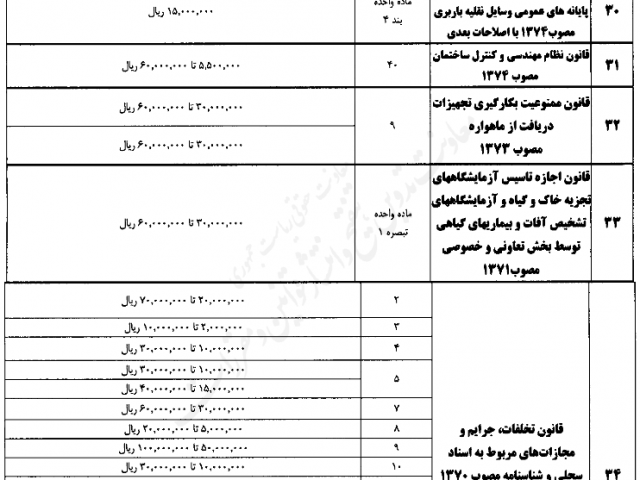 ۳۰
پایانه های عمومی وسایل نقلیه باربری
مصوب ۱۳۷۴ با اصلاحات بعدی
ماده واحده
بند ۴
۱۵,۰۰۰,۰۰۰ ریال
۳۱
قانون نظام مهندسی و کنترل ساختمان
مصوب ۱۳۷۴
۴۰
۵,۵۰۰,۰۰۰ تا ۶۰,۰۰۰,۰۰۰ ریال
۳۲
قانون ممنوعیت بکارگیری تجهیزات
دریافت از ماهواره
مصوب ۱۳۷۳
۹
۳۰,۰۰۰,۰۰۰ تا ۶۰,۰۰۰,۰۰۰ ریال
۳۰,۰۰۰,۰۰۰ تا ۶۰,۰۰۰,۰۰۰ ریال
۳۳
قانون اجازه تاسیس آزمایشگاههای
تجزیه خاک و گیاه و آزمایشگاههای
تشخیص آفات و بیماریهای گیاهی
توسط بخش تعاونی و خصوصی
مصوب۱۳۷۱
ماده واحده
تبصره ۱
۳۰,۰۰۰,۰۰۰ تا ۶۰,۰۰۰,۰۰۰ ریال
۳۴
قانون تخلفات، جرایم و
مجازات‌های مربوط به اسناد
سجلی و شناسنامه مصوب ۱۳۷۰
۲
۲۰,۰۰۰,۰۰۰ تا ۷۰,۰۰۰,۰۰۰ ریال
۳
۲,۰۰۰,۰۰۰ تا ۱۰,۰۰۰,۰۰۰ ریال
۴
۱۰,۰۰۰,۰۰۰ تا ۳۰,۰۰۰,۰۰۰ ریال
۵
۱۰,۰۰۰,۰۰۰ تا ۳۰,۰۰۰,۰۰۰ ریال
۱۵,۰۰۰,۰۰۰ تا ۴۰,۰۰۰,۰۰۰ ریال
۷
۳۰,۰۰۰,۰۰۰ تا ۶۰,۰۰۰,۰۰۰ ریال
۸
۵,۰۰۰,۰۰۰ تا ۲۰,۰۰۰,۰۰۰ ریال
۹
۵۰,۰۰۰,۰۰۰ تا ۱۰۰,۰۰۰,۰۰۰ ریال
۱۰
۱۰,۰۰۰,۰۰۰ تا ۳۰,۰۰۰,۰۰۰ ریال